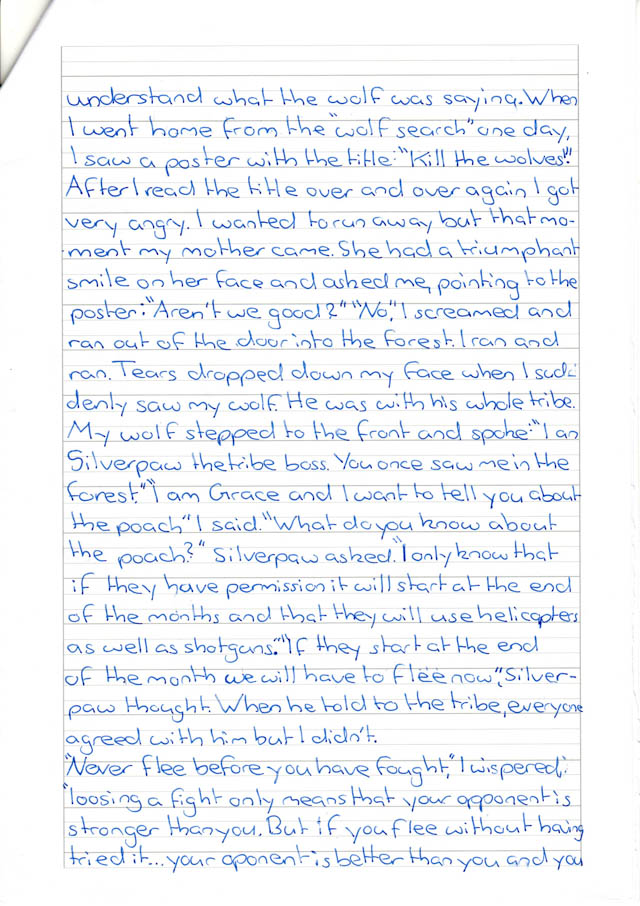 understand what the wolf was saying. When
I went home from the "wolf search" one day,
I saw a poster with the title: "Kill the wolves!"
After I read the title over and over again I got
very angry. I wanted to run away but that mo-
ment my mother came. She had a triumphant
smile on her face and asked me, pointing to the
poster: "Aren't we good?" "No," I screamed and
ran out of the door into the forest. I ran and
ran. Tears dropped down my face when I sud-
denly saw my wolf. He was with his whole tribe.
My wolf stepped to the front and spoke: "I am
Silverpaw the tribe boss. You once saw me in the
forest." "I am Grace and I want to tell you about
the poach" I said. "What do you know about
the poach?" Silverpaw asked. "I only know that
if they have permission it will start at the end
of the months and that they will use helicopters
as well as shotguns." "If they start at the end
of the month we will have to flee now", Silver-
paw thought. When he told to the tribe, everyone
agreed with him but I didn't.
"Never flee before you have fought," I wispered:
"loosing a fight only means that your opponent is
stronger than you. But if you flee without having
tried it... your oponent is better than you and you